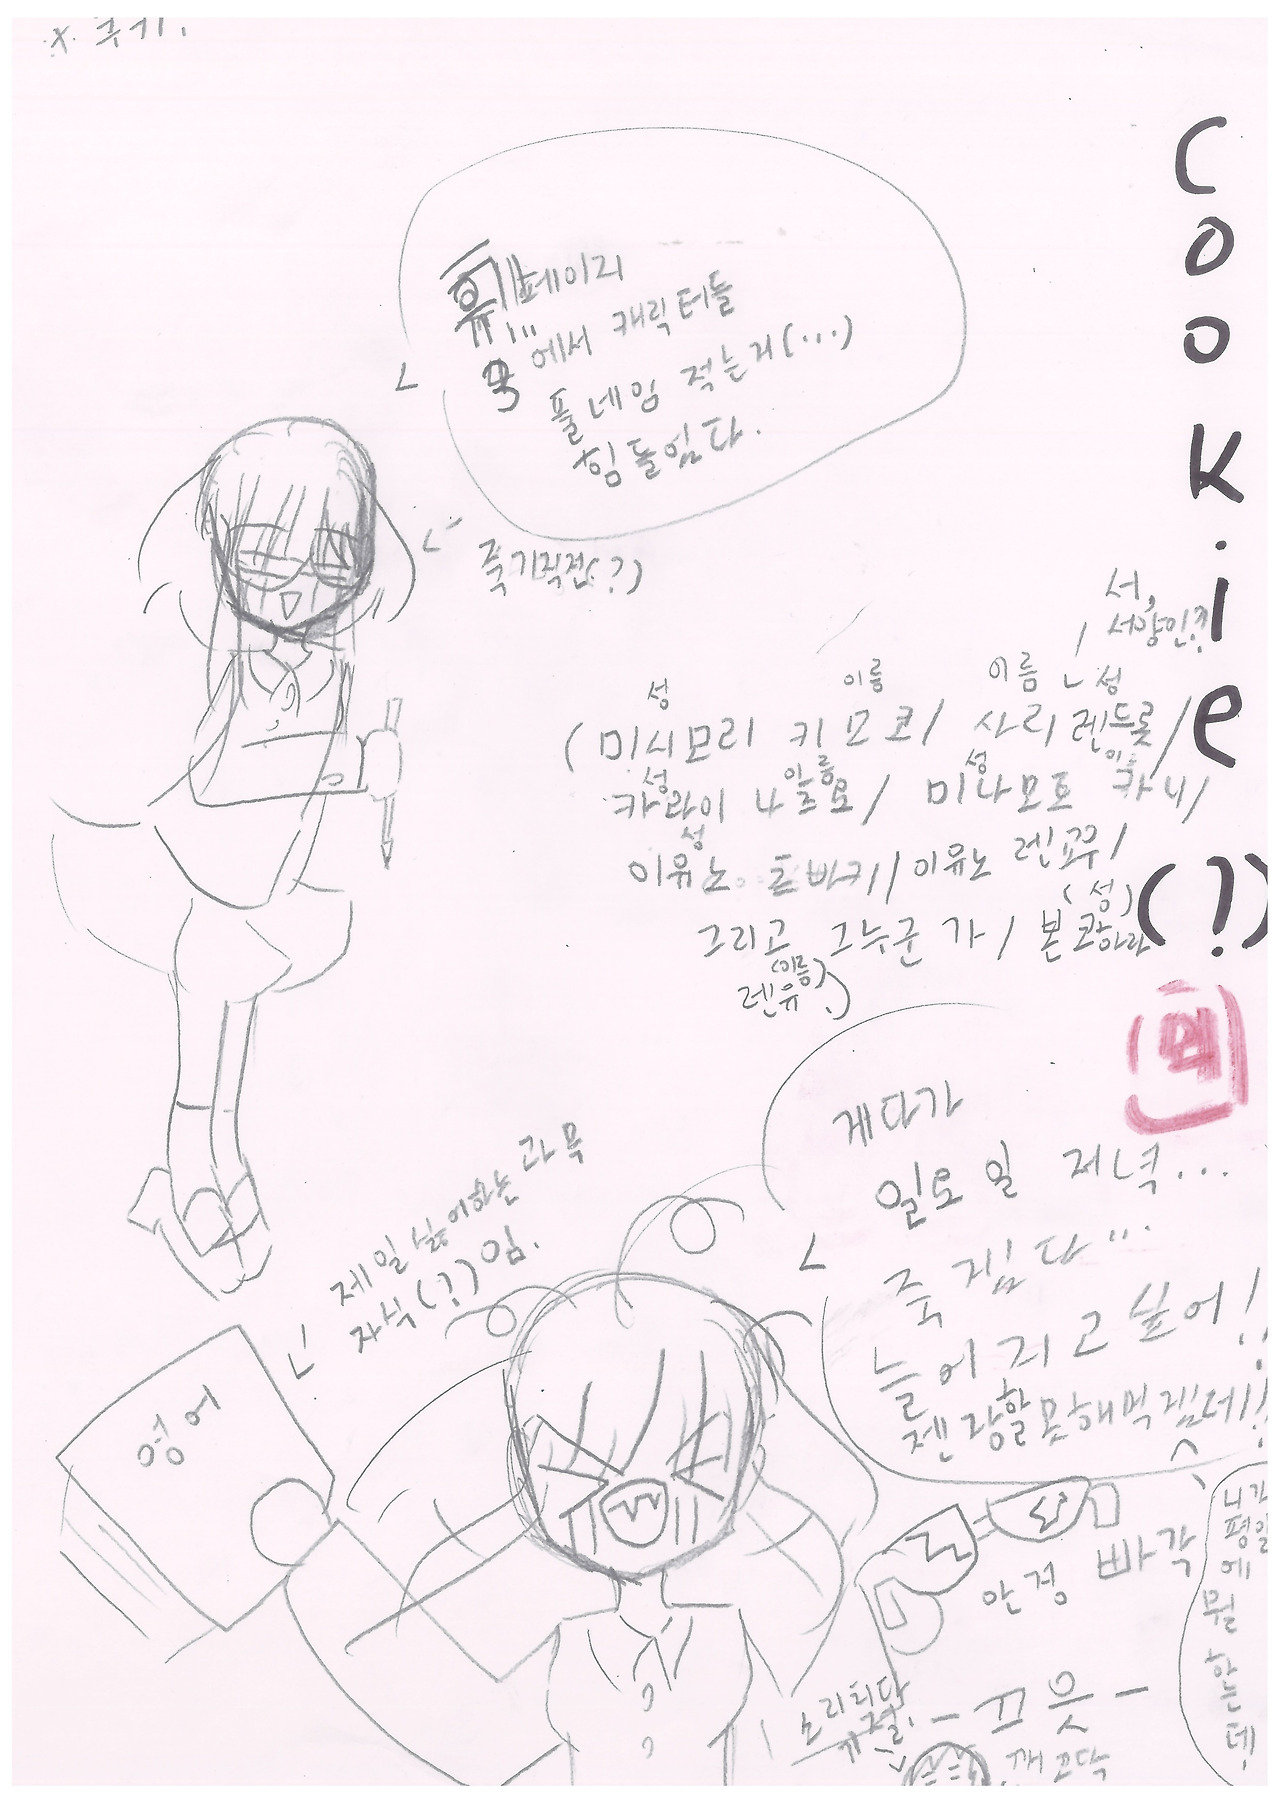 ※ 쿠키.
Cookie
(?)
휴 페이지
에서 캐릭터들
풀네임 적는거(...)
힘들임다.
죽기직전(?)
서,
서양인?
성 이름 이름 성
(미시모리 키코코/ 사리 렌드롯/
성 이름 성 이름
카라이 나르모/ 미나모토 카니/
성
이유노 츠빠키/이유노 렌꾸/
(성)
그리고 그누군 가/ 본
(이름)
렌유)
렌
게다가
일요일 저녁...
죽겠다...
늘어지고싶어!!
젠장할못해먹겠네!!
제일싫어하는과목
자식(?)임.
영어
안경 빠각
니가
평일
에
뭘
하는
데!
소리치다
기절.
-끄읏-
깨꼬닥